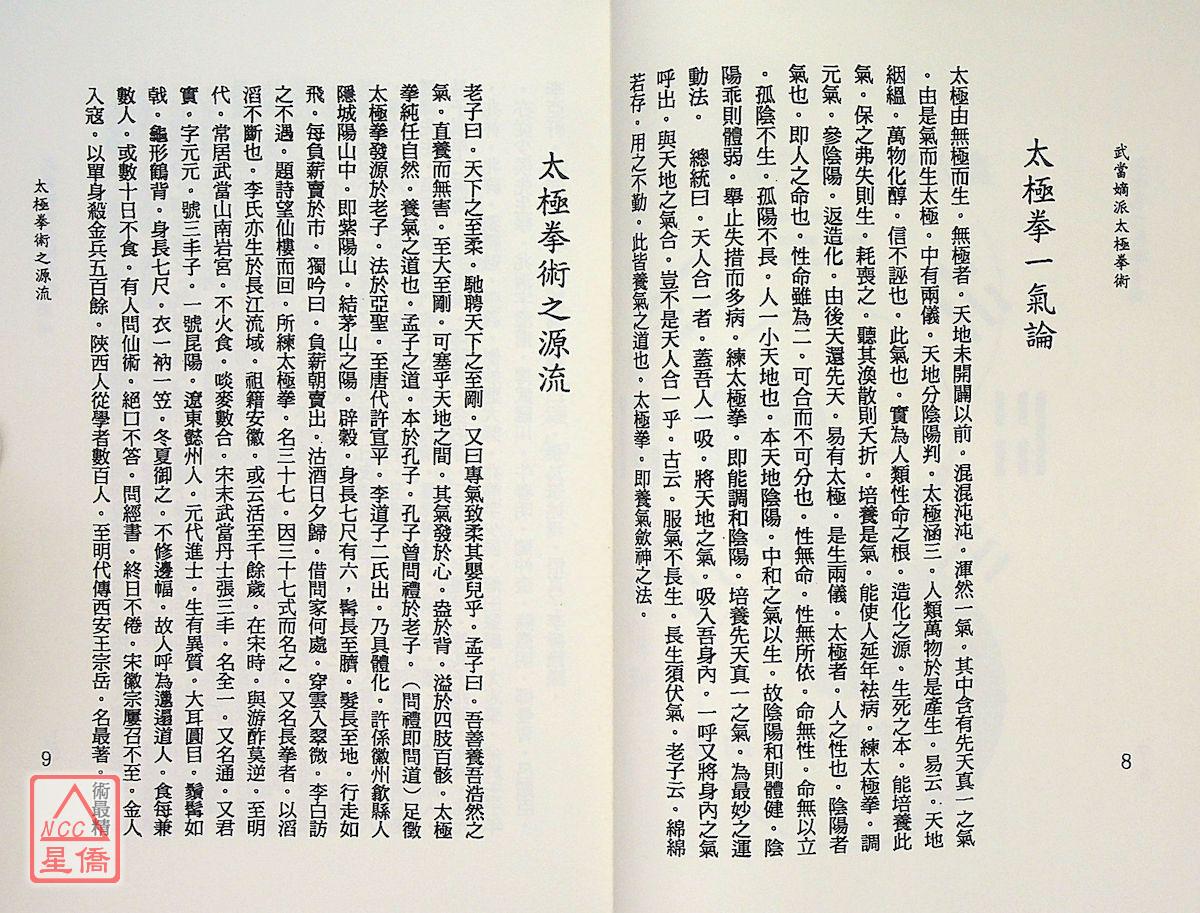 武當嫡派太極拳術
太極拳一氣論
太極由無極而生。無極者。天地未開闢以前。混混沌沌。渾然一氣。其中含有先天真一之氣
。由是氣而生太極。中有兩儀。天地分陰陽判。太極涵三。人類萬物於是產生。易云。天地
絪縕。萬物化醇。信不誣也。此氣也。實為人類性命之根。造化之源。生死之本。能培養此
氣。保之弗失則生。耗喪之。聽其渙散則夭折。培養是氣。能使人延年袪病。練太極拳。調
元氣。參陰陽。返造化。由後天還先天。易有太極。是生兩儀。太極者。人之性也。陰陽者
氣也。即人之命也。性命雖為二。可合而不可分也。性無命。性無所依。命無性。命無以立
。孤陰不生。孤陽不長。人一小天地也。本天地陰陽。中和之氣以生。故陰陽和則體健。陰
陽乖則體弱。舉止失措而多病。練太極拳。即能調和陰陽。培養先天真一之氣。為最妙之運
動法。 總統曰。天人合一者。蓋吾人一吸。將天地之氣。吸入吾身內。一呼又將身內之氣
呼出。與天地之氣合。豈不是天人合一乎。古云。服氣不長生。長生須伏氣。老子云。綿綿
若存。用之不勤。此皆養氣之道也。太極拳。即養氣歛神之法。
8
太極拳術之源流
老子曰。天下之至柔。馳騁天下之至剛。又曰專氣致柔其嬰兒乎。孟子曰。吾善養吾浩然之
氣。直養而無害。至大至剛。可塞乎天地之間。其氣發於心。盎於背。溢於四肢百骸。太極
拳純任自然。養氣之道也。孟子之道。本於孔子。孔子曾問禮於老子。（問禮即問道）足徵
太極拳發源於老子。法於亞聖。至唐代許宣平。李道子二氏出。乃具體化。許係徽州歙縣人
隱城陽山中。即紫陽山。結茅山之陽。辟穀。身長七尺有六，髯長至臍。髮長至地。行走如
飛。每負薪賣於市。獨吟曰。負薪朝賣出。沽酒日夕歸。借問家何處。穿雲入翠微。李白訪
之不遇。題詩望仙樓而回。所練太極拳。名三十七。因三十七式而名之。又名長拳者。以滔
滔不斷也。李氏亦生於長江流域。祖籍安徽。或云活至千餘歲。在宋時。與游酢莫逆。至明
代。常居武當山南岩宮。不火食。啖麥數合。宋末武當丹士張三丰。名全一。又名通。又君
實。字元元。號三丰子。一號昆陽。遼東懿州人。元代進士。生有異質。大耳圓目。鬚髯如
戟。龜形鶴背。身長七尺。衣一衲一笠。冬夏御之。不修邊幅。故人呼為邋遢道人。食每兼
數人。或數十日不食。有人問仙術。絕口不答。問經書。終日不倦。宋徽宗屢召不至。金人
入寇。以單身殺金兵五百餘。陝西人從學者數百人。至明代傳西安王宗岳。名最著。術最精
太極拳術之源流
9
NCC
星僑